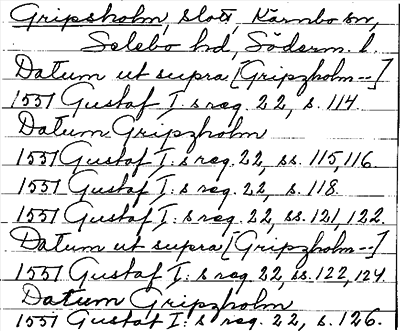 Gripsholm, slott, Kärnbo sn,
Selebo hd, Söderm. l.
Datum ut supra [Gripzholm--]
1551 Gustaf I:s reg. 22, s. 114.
Datum Gripzholm
1551 Gustaf I:s reg. 22, ss. 115, 116.
1551 Gustaf I:s reg. 22, s. 118.
1551 Gustaf I:s reg. 22, ss. 121, 122.
Datum ut supra [Gripzholm--]
1551 Gustaf I:s reg. 22, ss. 122, 124.
Datum Gripzholm
1551 Gustaf I:s reg. 22, s. 126.